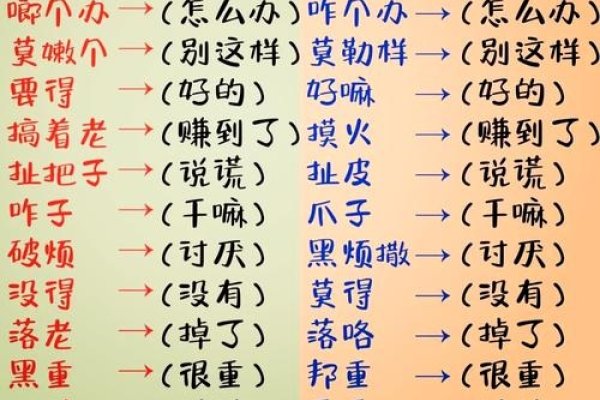 啷个办→(怎么办) 咋个办→(怎么办)
莫嫩个→(别这样) 莫勒样→(别这样)
要得→(好的) 好嘛→(好的)
搞着老→(赚到了) 摸火→(赚到了)
扯把子→(说谎) 扯皮→(说谎)
咋子→(干嘛) 爪子→(干嘛)
破烦→(讨厌) 黑烦撒→(讨厌)
没得→(没有) 莫得→(没有)
落老→(掉了) 落咯→(掉了)
黑重→(很重) 邦重→(很重)